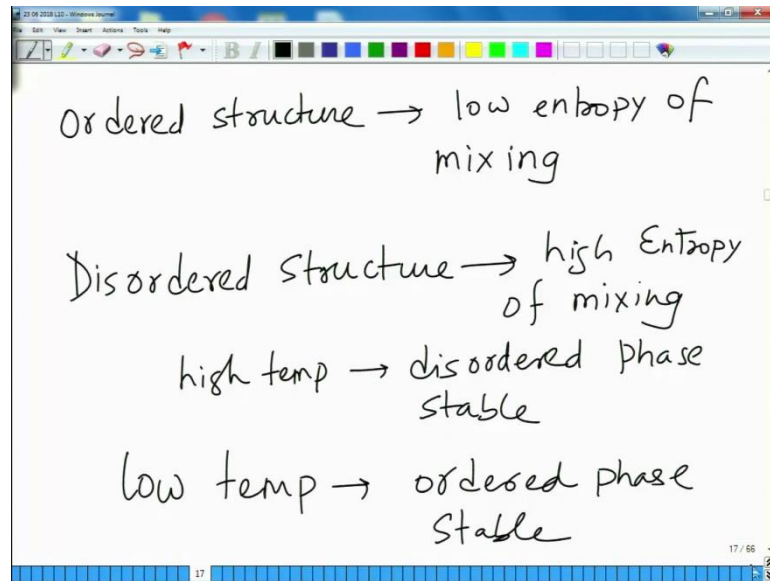 23 06 2018 L10 - Windows Journal
File Edit View Insert Actions Tools Help
B I
Ordered structure → low entropy of
mixing
Disordered structure → high Entropy
of mixing
high temp → disordered phase
stable
low temp → ordered phase
stable
17 / 66
17